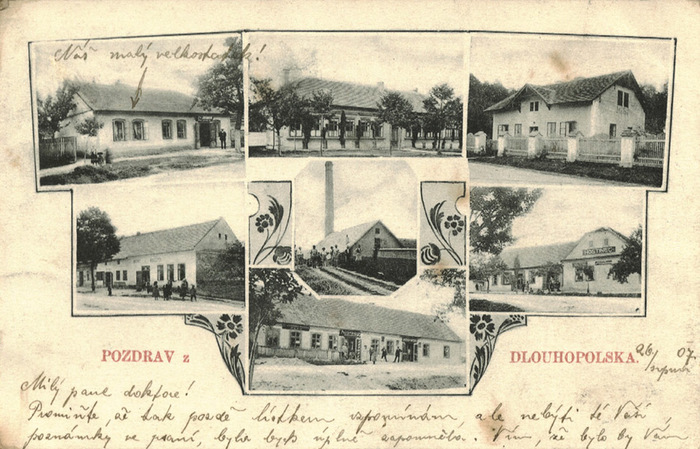 Náš malý velkostatek!
HOSTINEC
POZDRAV z DLOUHOPOLSKA.
26/ srpna 07
Milý pane doktore!
Promiňte, až tak pozdě lístkem vzpomínám, ale nebýti té Vaší
poznámky ve psaní, byla bych úplně zapomněla. Vím, že bylo by Vám